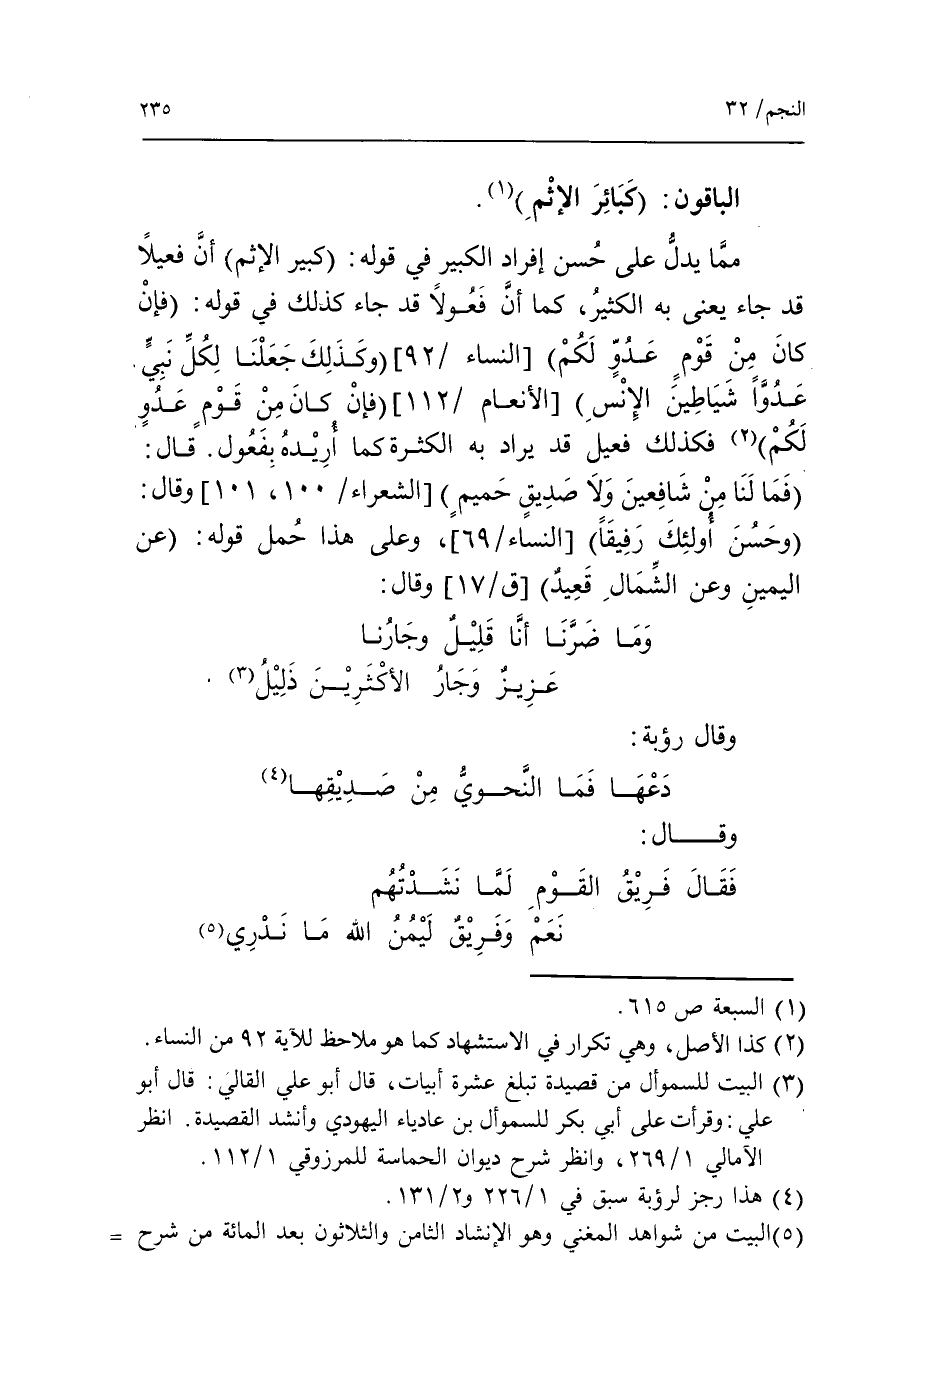 النجم/ ٣٢ ٢٣٥
الباقون: (كَبَائِرَ الإثْمِ)(١).
ممَّا يدلُّ على حُسن إفراد الكبير في قوله: (كبير الإثم) أنَّ فعيلاً
قد جاء يعنى به الكثيرُ، كما أنَّ فَعُولاً قد جاء كذلك في قوله: (فإنْ
كانَ مِنْ قَوْمٍ عَدُوٍّ لَكُمْ) [النساء /٩٢] (وكَذَلِكَ جَعَلْنَا لِكُلِّ نَبِيٍّ
عَدُوَّاً شَيَاطِينَ الإنْسِ) [الأنعام /١١٢] (فإنْ كانَ مِنْ قَوْمٍ عَدُوٍ
لَكُمْ)(٢) فكذلك فعيل قد يراد به الكثرة كما أُرِيْدهُ بِفَعُول. قال:
(فَمَا لَنَا مِنْ شَافِعينَ وَلَا صَدِيقٍ حَميمٍ) [الشعراء/ ١٠٠، ١٠١] وقال:
(وحَسُنَ أُولئِكَ رَفِيقَاً) [النساء/٦٩]، وعلى هذا حُمل قوله: (عن
اليمينِ وعن الشِّمَالِ قَعِيدٌ) [ق/١٧] وقال:
وَمَا ضَرَّنَا أنَّا قَلِيْلٌ وجَارُنا
عَزِيزٌ وَجَارُ الأكْثَرِيْنَ ذَلِيْلُ(٣).
وقال رؤبة:
دَعْهَا فَمَا النَّحويُّ مِنْ صَدِيْقِها(٤)
وقال:
فَقَالَ فَرِيْقُ القَوْمِ لَمَّا نَشَدْتُهُم
نَعَمْ وَفَرِيْقٌ لَيْمُنُ الله مَا نَدْرِي(٥)
(١) السبعة ص ٦١٥.
(٢) كذا الأصل، وهي تكرار في الاستشهاد كما هو ملاحظ للآية ٩٢ من النساء.
(٣) البيت للسموأل من قصيدة تبلغ عشرة أبيات، قال أبو علي القالي: قال أبو
علي: وقرأت على أبي بكر للسموأل بن عادياء اليهودي وأنشد القصيدة. انظر
الآمالي ٢٦٩/١، وانظر شرح ديوان الحماسة للمرزوقي ١١٢/١.
(٤) هذا رجز لرؤبة سبق في ٢٢٦/١ و١٣١/٢.
(٥) البيت من شواهد المغني وهو الإنشاد الثامن والثلاثون بعد المائة من شرح =